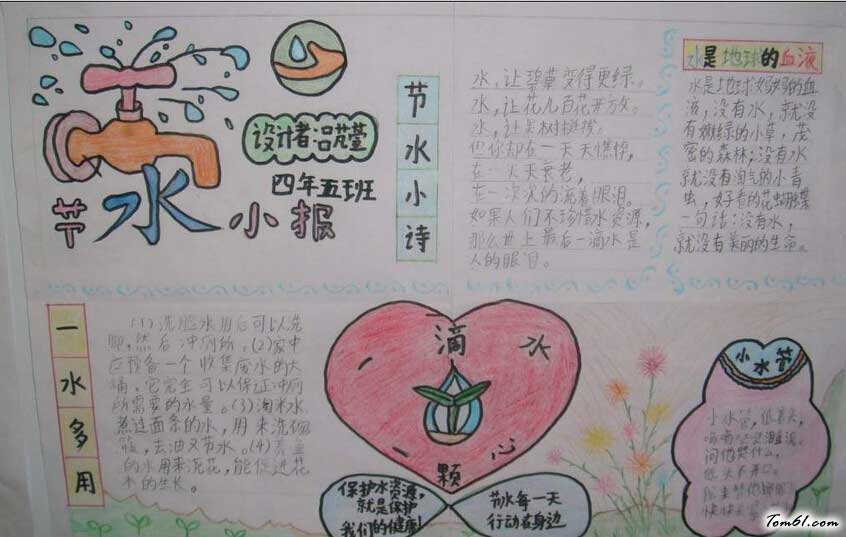 节水小报
设计者:吕苋莹
四年五班
节水小诗
水,让碧草变得更绿。
水,让花儿百花开放。
水,让大树挺拔。
但你却在一天天憔悴,
在一天天衰老,
在一次次的流着眼泪。
如果人们不珍惜水资源,
那么世上最后一滴水是
人的眼泪。
水是地球的血液
水是地球妈妈的血
液,没有水,就没
有嫩绿的小草,茂
密的森林;没有水
就没有淘气的小青
虫,好看的花蝴蝶
一句话:没有水,
就没有美丽的生命。
一水多用
(1)洗脸水用后可以洗
脚,然后冲厕所。(2)家中
应预备一个收集废水的大
桶,它完全可以保证冲厕
所需要的水量。(3)淘米水
煮过面条的水,用来洗碗
筷,去油又节水。(4)养鱼
的水用来浇花,能促进花
木的生长。
一滴水
一颗心
保护水资源,
就是保护
我们的健康!
节水每一天
行动在身边
小水管
小水管,低着头,
问他哭什么,
低头不开口。
Tom61.com